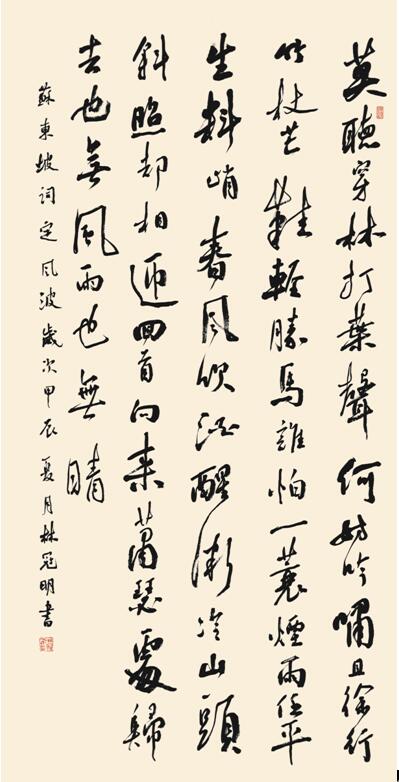 莫聽穿林打葉聲何妨吟嘯且徐行
竹杖芒鞋輕勝馬誰怕一蓑煙雨任平
生料峭春風吹酒醒微冷山頭
斜照却相迎回首向來蕭瑟處歸
去也無風雨也無晴
蘇東坡詞定風波歲次甲辰夏月林冠明書